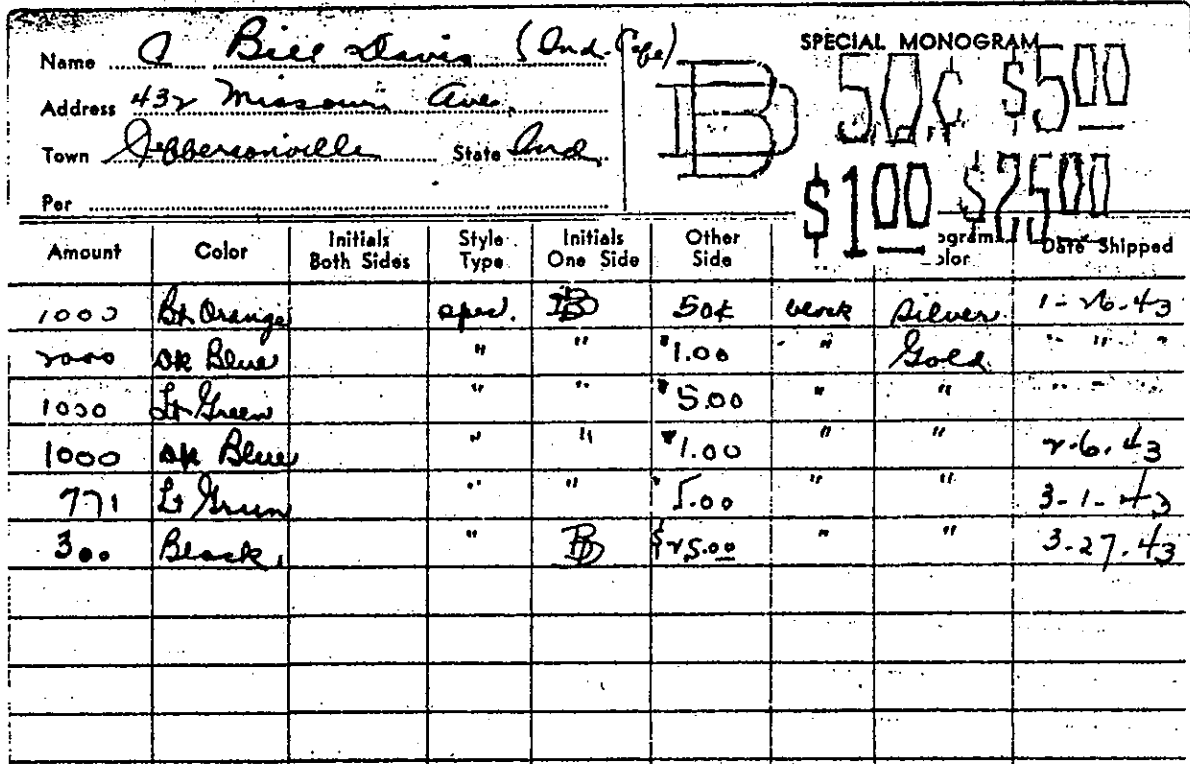 SPECIAL MONOGRAM
Name Bill Davis (Ind. Cafe)
Address 432 Missouri Ave.
Town Jeffersonville State Ind.
Per
50¢ $5 00
$1 00 $25 00
Amount Color Initials Both Sides Style Type Initials One Side Other Side Date Shipped
1000 Bt Orange spec. 50¢ Silver 1-26-43
2000 DK Blue " " $1.00 " Gold " " "
1000 Lt Green " " $5.00 " " " " "
1000 DK Blue " " $1.00 " " 2-6-43
771 Lt Green " " 5.00 " " 3-1-43
300 Black " $25.00 " " 3-27-43